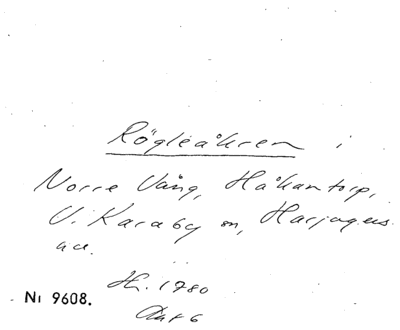 Rögleåkren i
Norre Vång, Håkantorp,
V. Karaby m, Harjagers
Hr. 1780
Nı 9608.